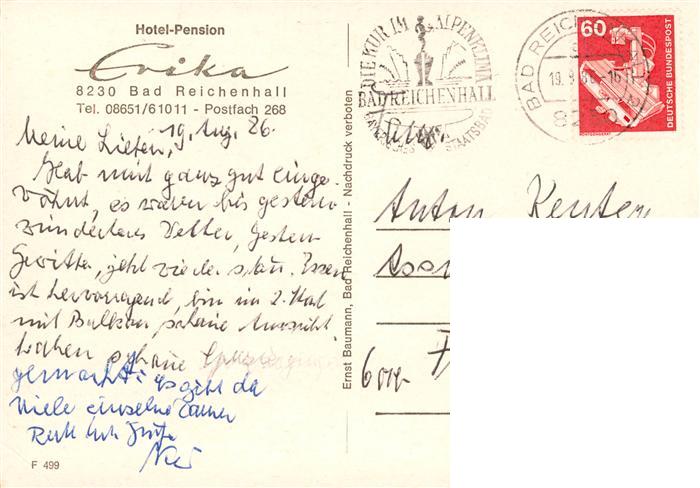 Hotel-Pension
Erika
8230 Bad Reichenhall
Tel. 08651/61011 - Postfach 268
Meine Lieben,
Hab mich ganz gut einge-
wöhnt, es waren bis gestern
Wetter, gestern
Gewitter, jetzt wieder schön. Essen
ist hervorragend, bin im 2. Stock
mit Balkon, schöne Aussicht
haben schöne Spaziergänge
gemacht. es gibt da
viele einzelne
F 499
Ernst Baumann, Bad Reichenhall - Nachdruck verboten
DIE KUR IM ALPENKLIMA
BAD REICHENHALL
BAYERISCHES STAATSBAD
BAD REICHENHALL
8230
60
DEUTSCHE BUNDESPOST
Anton